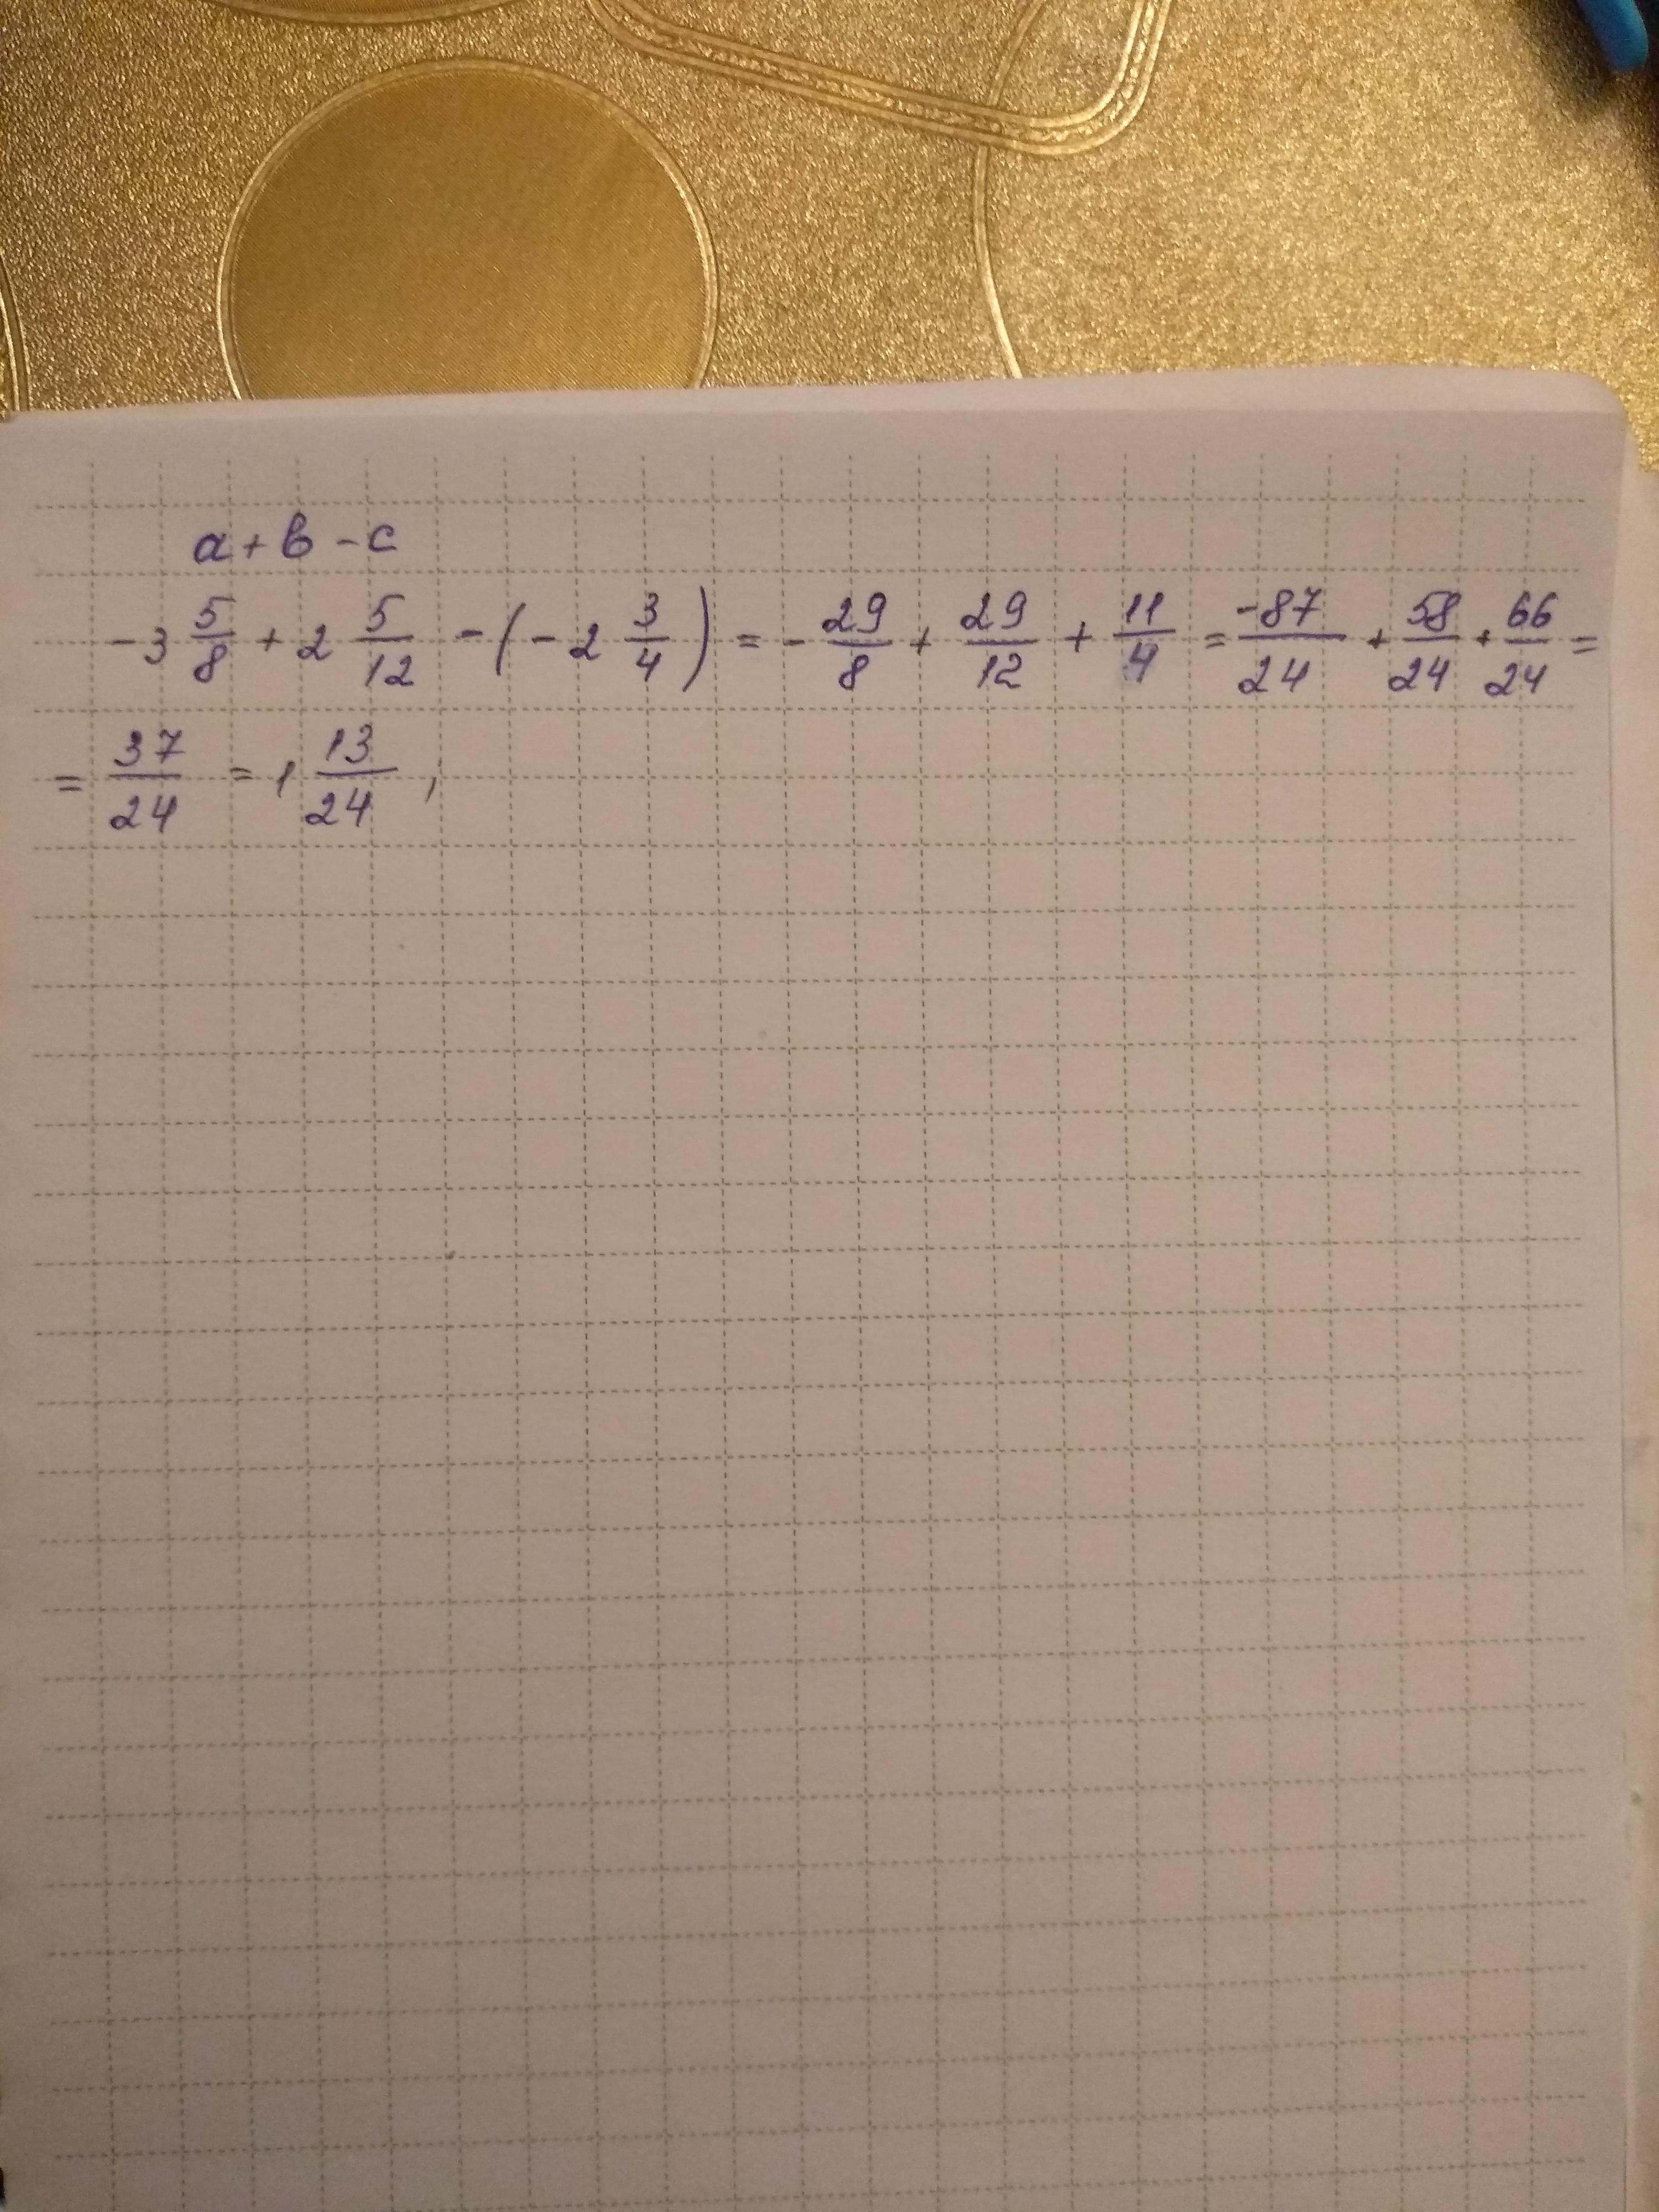 a + b - c
- 3 5/8 + 2 5/12 - ( - 2 3/4 ) = - 29/8 + 29/12 + 11/4 = -87/24 + 58/24 + 66/24 =
= 37/24 = 1 13/24 ,